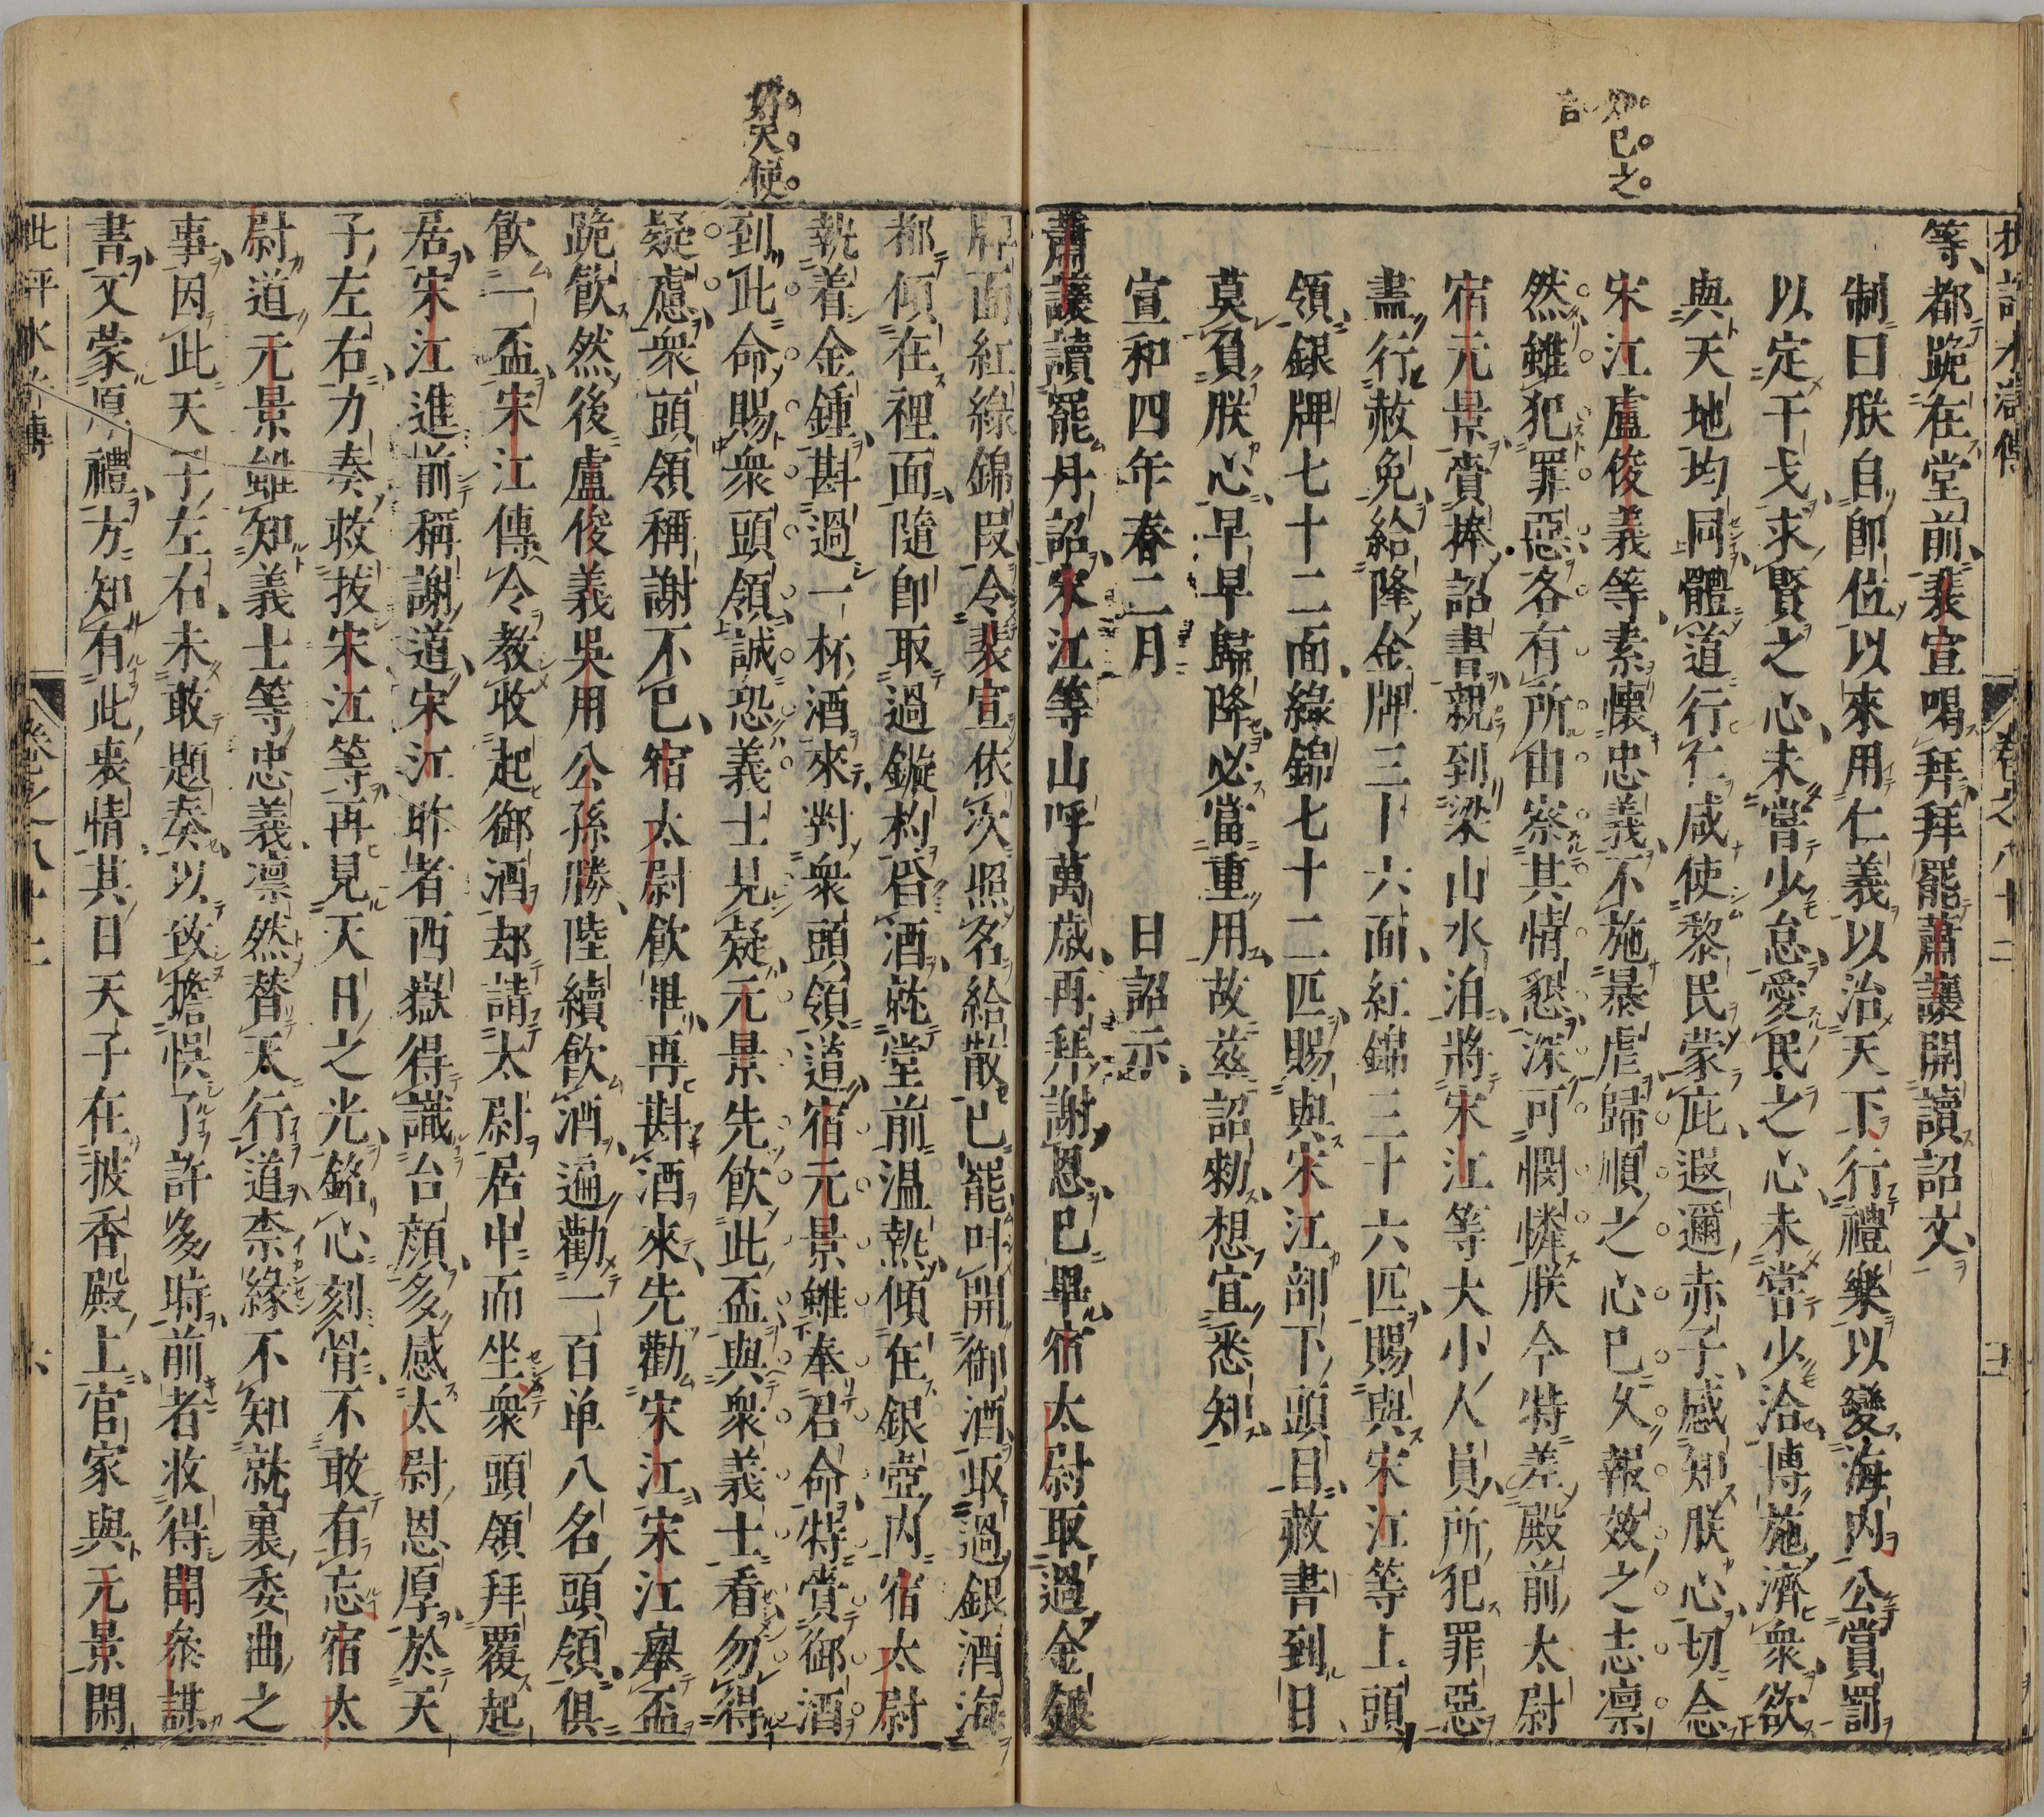 批評水滸傳 卷之八十二 五
知己之
言
等都跪在堂前裴宣喝拜拜罷蕭讓開讀詔文
制曰朕自即位以來用仁義以治天下行禮樂以變海內公賞罰
以定干戈求賢之心未嘗少怠愛民之心未嘗少洽博施濟衆欲
與天地均同體道行仁咸使黎民蒙庇遐邇赤子感知朕心切念
宋江盧俊義等素懷忠義不施暴虐歸順之心已久報效之志凛
然雖犯罪惡各有所由察其情懇深可憫憐朕今特差殿前太尉
宿元景賫捧詔書親到梁山水泊將宋江等大小人員所犯罪惡
盡行赦免給降金牌三十六面紅錦三十六匹賜與宋江等上頭
領銀牌七十二面綠錦七十二匹賜與宋江部下頭目赦書到日
莫負朕心早早歸降必當重用故茲詔勑想宜悉知
宣和四年春二月 日詔示
蕭讓讀罷丹詔宋江等山呼萬歲再拜謝恩已畢宿太尉取過金銀
好天使
牌面紅綠錦段令裴宣依次照名給散已罷叫開御酒取過銀酒海
都傾在裡面隨即取過鏇杓舀酒就堂前温熱傾在銀壺內宿太尉
執着金鍾斟過一杯酒來對衆頭領道宿元景雖奉君命特賫御酒
到此命賜衆頭領誠恐義士見疑元景先飲此盃與衆義士看勿得
疑慮衆頭領稱謝不已宿太尉飲畢再斟酒來先勸宋江宋江舉盃
跪飲然後盧俊義吳用公孫勝陸續飲酒遍勸一百单八名頭領俱
飲一盃宋江傳令教收起御酒却請太尉居中而坐衆頭領拜覆起
居宋江進前稱謝道宋江昨者西嶽得識台顔多感太尉恩厚於天
子左右力奏救拔宋江等再見天日之光銘心刻骨不敢有忘宿太
尉道元景雖知義士等忠義凛然替天行道柰緣不知就裏委曲之
事因此天子左右未敢題奏以致擔悞了許多時前者收得聞叅謀
書又蒙厚禮方知有此衷情其日天子在披香殿上官家與元景閑
批評水滸傳 卷之八十二 六